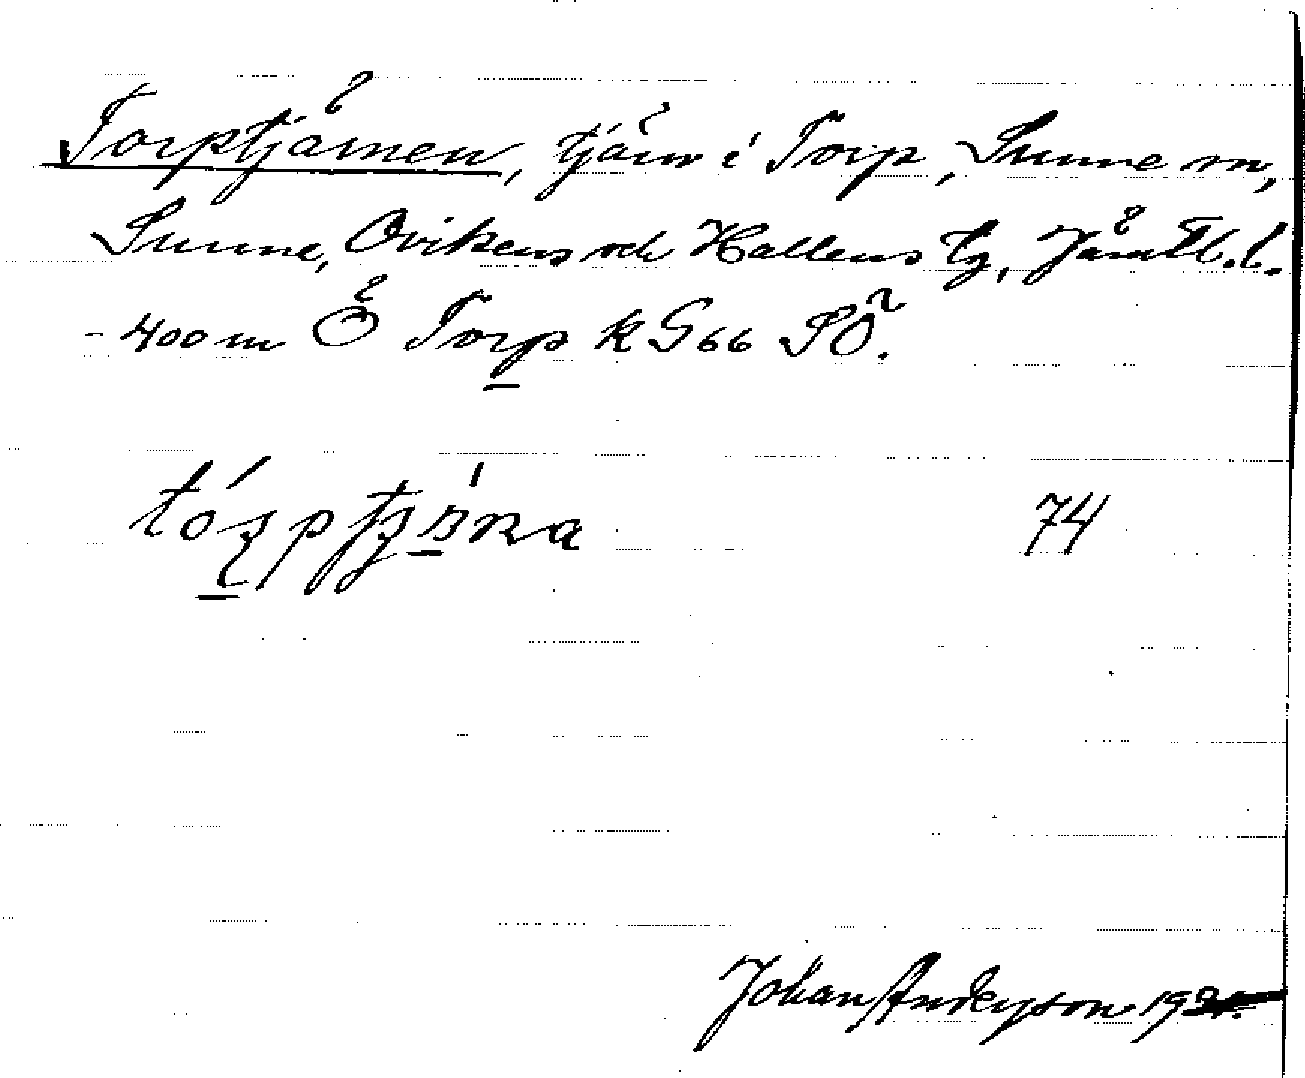 Torptjärnen, tjärn i Torp, Sunne sn,
Sunne, Ovikens och Hallens tg, Jämtl. l.
- 400 m Ö Torp k G 66 SÖ.
74
Johan Anderson 19